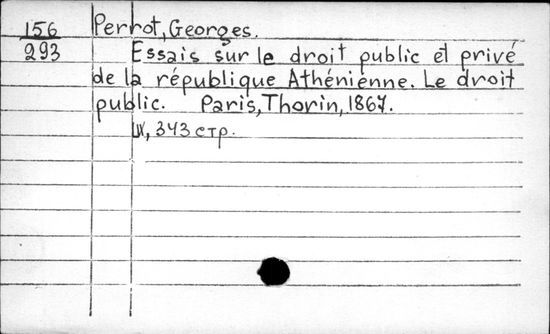 156
293
Perrot, Georges.
Essais sur le droit public et privé
de la république Athénienne. Le droit
public. Paris, Thorin, 1867.
343 стр.